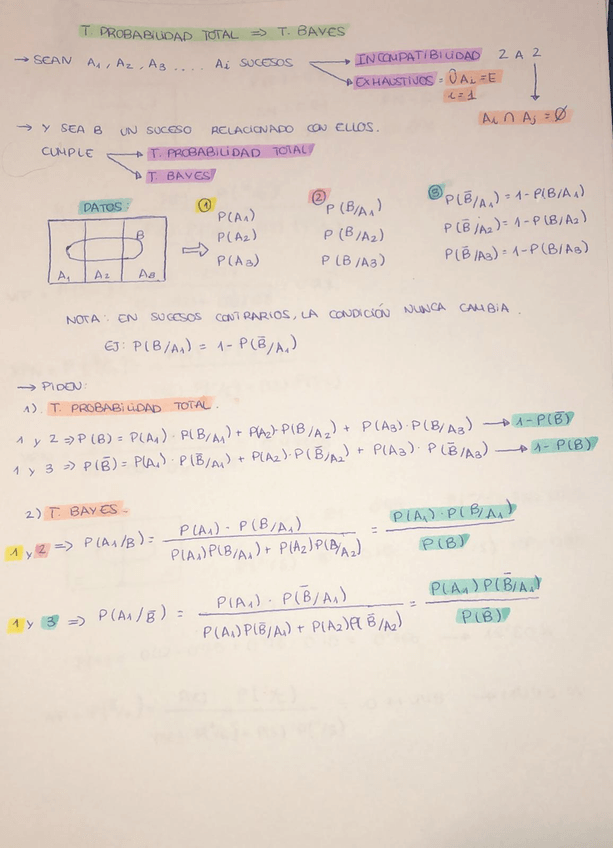 T. PROBABILIDAD TOTAL => T. BAYES
→ SEAN A₁, A₂, A₃ .... Ai SUCESOS → INCOMPATIBILIDAD 2 A 2
→ EXHAUSTIVOS = ∪Ai = E
i=1
Ai ∩ Aj = Ø
→ Y SEA B UN SUCESO RELACIONADO CON ELLOS.
CUMPLE → T. PROBABILIDAD TOTAL
→ T. BAYES
DATOS: ① ② ③
P(A₁) P(B/A₁) P(B̄/A₁) = 1-P(B/A₁)
B P(A₂) P(B/A₂) P(B̄/A₂) = 1-P(B/A₂)
A₁ A₂ A₃ P(A₃) P(B/A₃) P(B̄/A₃) = 1-P(B/A₃)
NOTA: EN SUCESOS CONTRARIOS, LA CONDICIÓN NUNCA CAMBIA.
EJ: P(B/A₁) = 1-P(B̄/A₁)
→ PIDEN:
1). T. PROBABILIDAD TOTAL.
1 y 2 => P(B) = P(A₁) · P(B/A₁) + P(A₂)·P(B/A₂) + P(A₃)·P(B/A₃) → 1-P(B̄)
1 y 3 => P(B̄) = P(A₁)·P(B̄/A₁) + P(A₂)·P(B̄/A₂) + P(A₃)·P(B̄/A₃) → 1-P(B)
2) T. BAYES.
1 y 2 => P(A₁/B) = P(A₁) · P(B/A₁) / P(A₁)P(B/A₁) + P(A₂)P(B/A₂) = P(A₁)·P(B/A₁) / P(B)
1 y 3 => P(A₁/B̄) = P(A₁) · P(B̄/A₁) / P(A₁)P(B̄/A₁) + P(A₂)P(B̄/A₂) = P(A₁)P(B̄/A₁) / P(B̄)